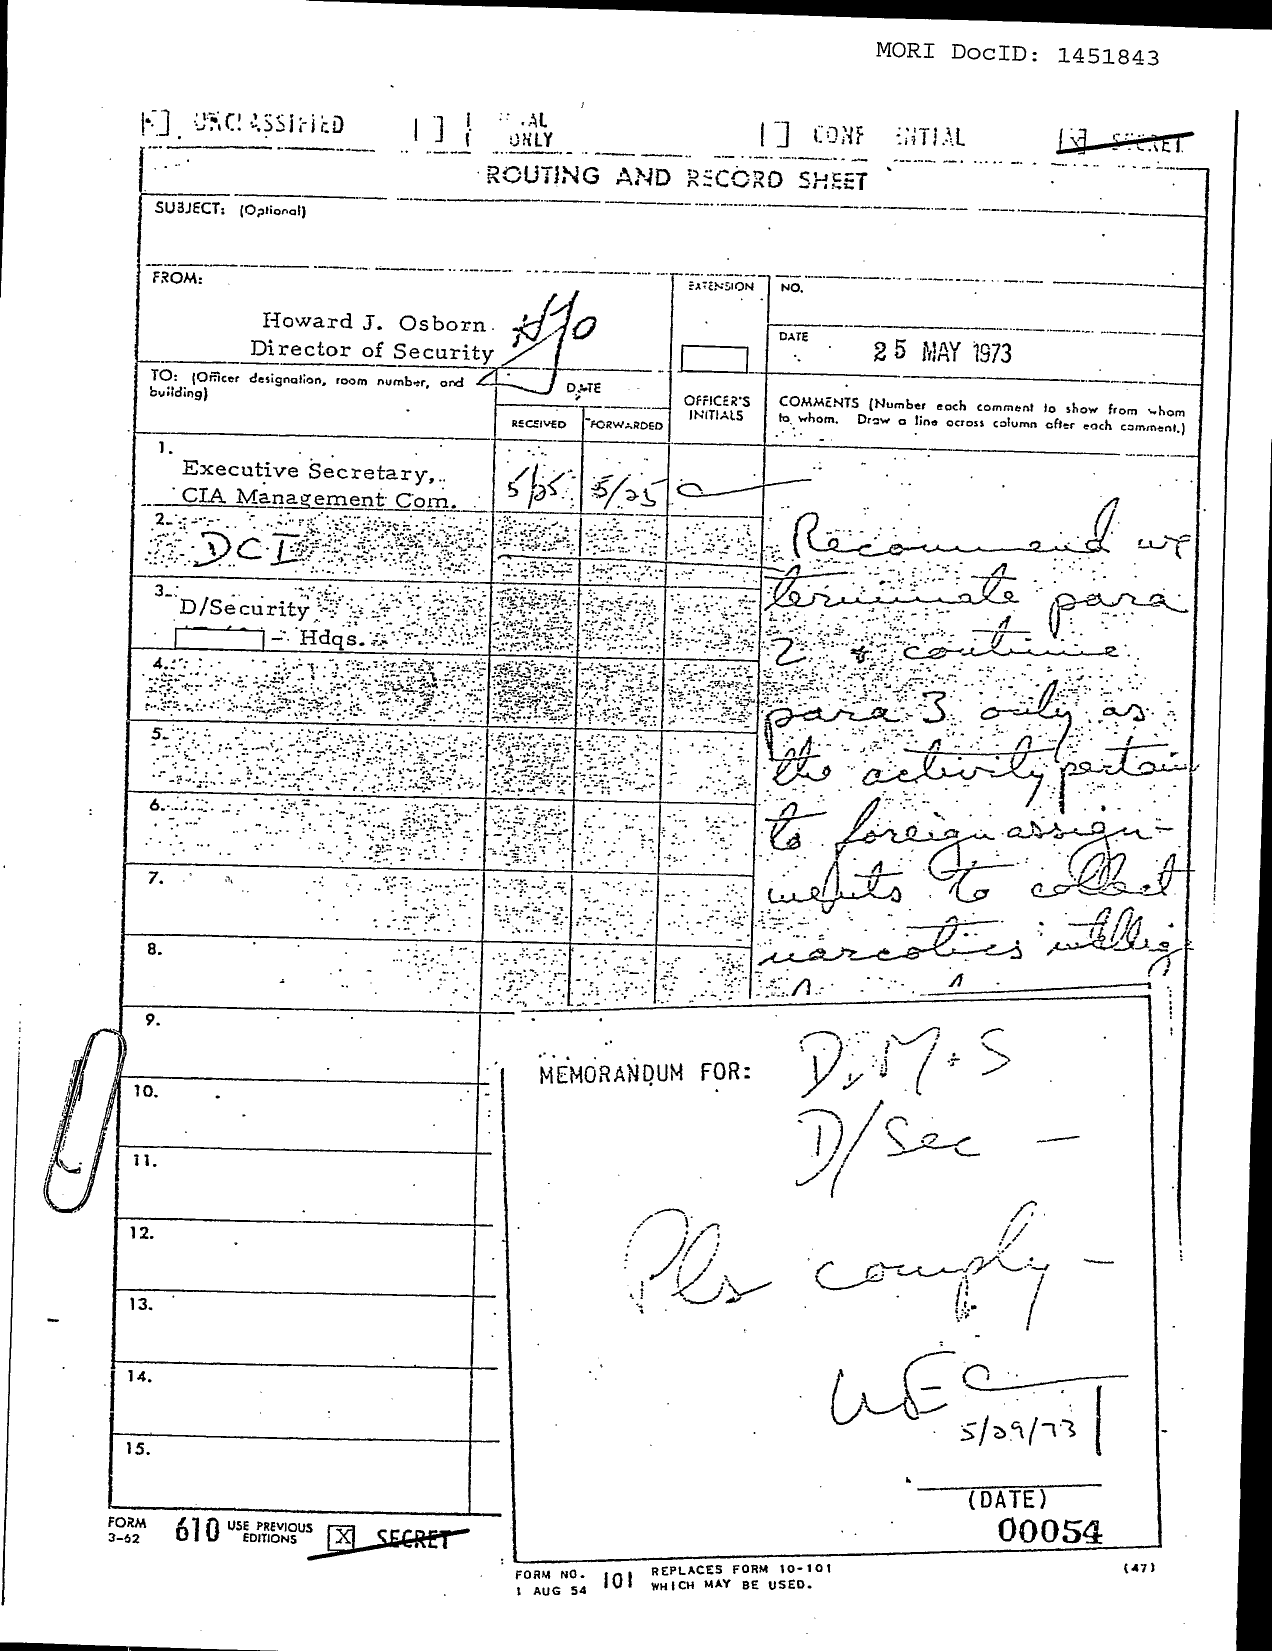 MORI DocID: 1451843
UNCLASSIFIED
ONLY
SECRET
ROUTING AND RECORD SHEET
SUBJECT: (Optional)
FROM:
Howard J. Osborn
Director of Security
EXTENSION
NO.
DATE
25 MAY 1973
TO: (Officer designation, room number, and
building)
DATE
RECEIVED
FORWARDED
OFFICER'S
INITIALS
COMMENTS (Number each comment to show from whom
to whom. Draw a line across column after each comment.)
1.
Executive Secretary,
CIA Management Com.
5/25
5/25
2.
DCI
3.
D/Security
- Hdqs.
4.
5.
6.
7.
8.
9.
10.
11.
12.
13.
14.
15.
Recommend we
terminate para
2 & continue
para 3 only as
the activity pertains
to foreign assign-
ments to collect
narcotics
MEMORANDUM FOR:
D/M+S
D/Sec -
Pls comply -
WEC
5/29/73
(DATE)
00054
FORM
3-62
610
USE PREVIOUS
EDITIONS
X
SECRET
FORM NO.
1 AUG 54
101
REPLACES FORM 10-101
WHICH MAY BE USED.
(47)